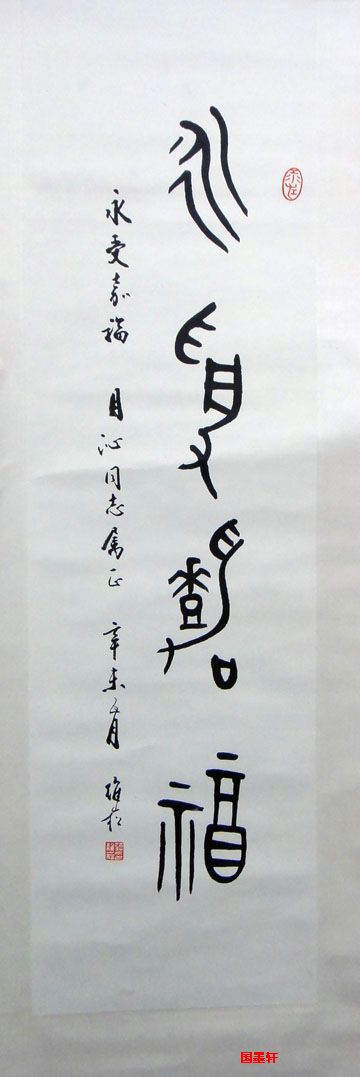 永受嘉福
永受嘉福 目沁同志属正 辛未月
国墨轩